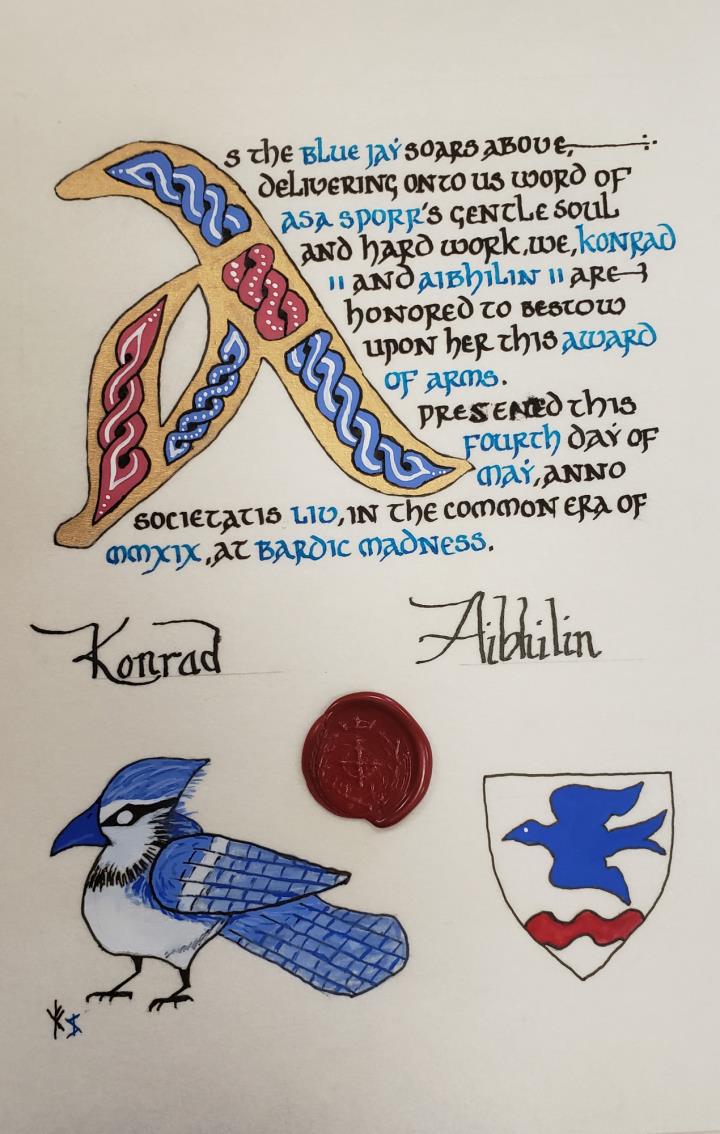 As the Blue Jay soars above,
delivering onto us word of
Asa Sporr's gentle soul
and hard work, we, Konrad
II and Aibhilin II are
honored to bestow
upon her this award
of arms.
Presented this
fourth day of
May, anno
societatis LIV, in the common era of
MMXIX, at Bardic Madness.
Konrad
Aibhilin